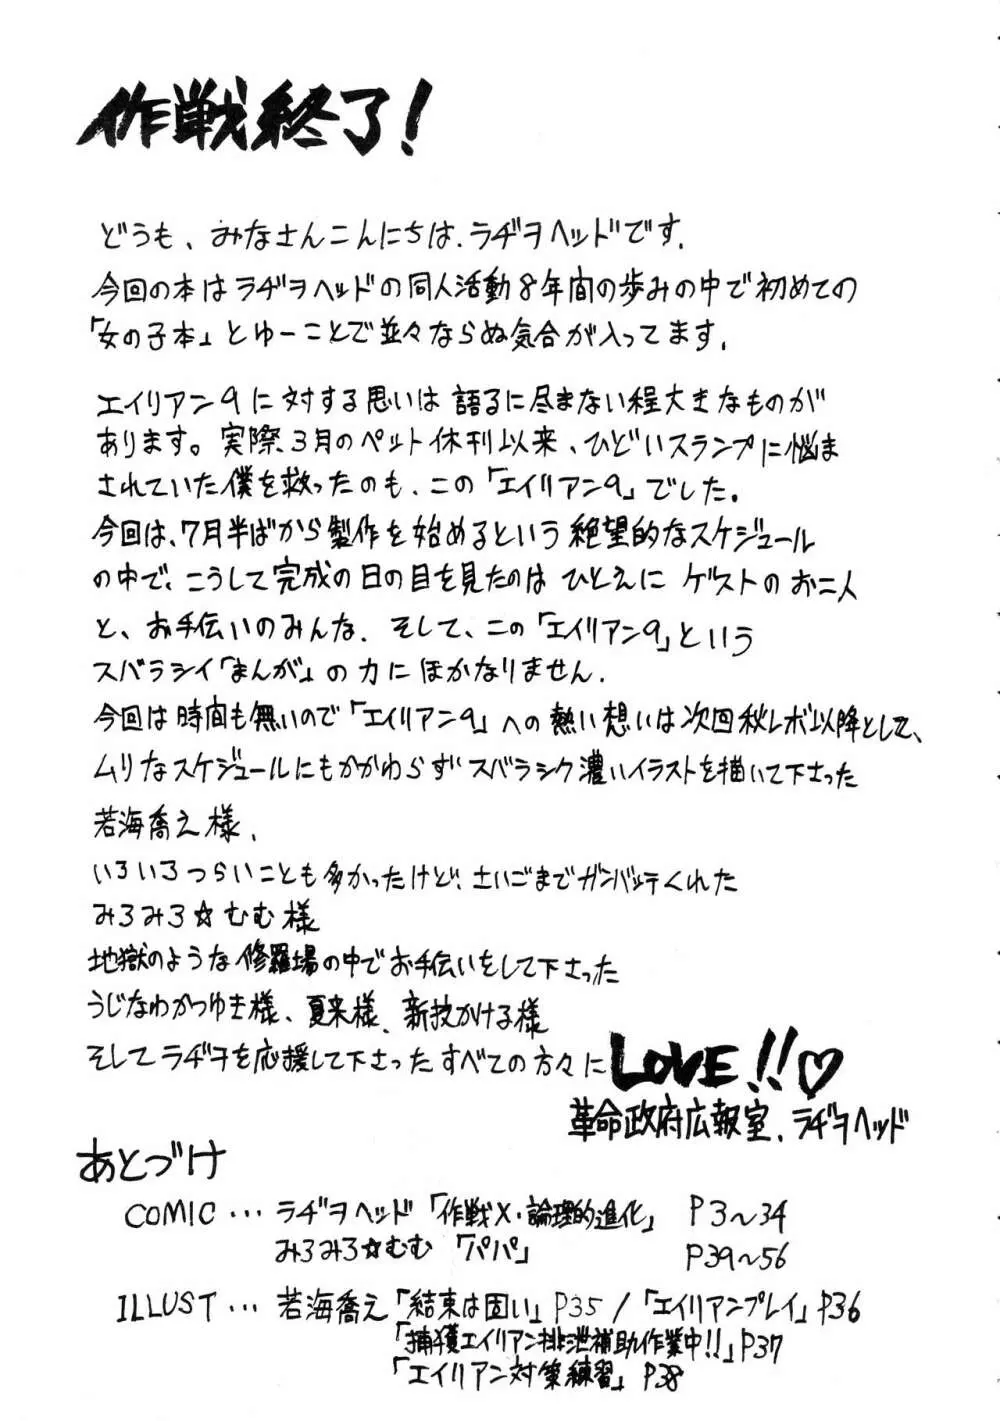 作戦終了!
どうも、みなさんこんにちは.ラヂヲヘッドです.
今回の本はラヂヲヘッドの同人活動8年間の歩みの中で初めての
「女の子本」とゆーことで並々ならぬ気合が入ってます.
エイリアン9に対する思いは語るに尽きない程大きなものが
あります。実際3月のペット休刊以来、ひどいスランプに悩ま
されていた僕を救ったのも、この「エイリアン9」でした。
今回は、7月半ばから製作を始めるという絶望的なスケジュール
の中で、こうして完成の日の目を見たのはひとえにゲストのお二人
と、お手伝いのみんな.そして、この「エイリアン9」という
スバラシイ「まんが」の力にほかなりません.
今回は時間も無いので「エイリアン9」への熱い想いは次回秋レボ以降として、
ムリなスケジュールにもかかわらずスバラシク濃いイラストを描いて下さった
若海喬え様.
いろいろつらいことも多かったけど、さいごまでガンバッテくれた
みろみろ☆むむ様
地獄のような修羅場の中でお手伝いをして下さった
うじなわかつゆき様、夏来様、新技かける様
そしてラヂヲを応援して下さったすべての方々に LOVE!!♡
革命政府広報室.ラヂヲヘッド
あとづけ
COMIC … ラヂヲヘッド「作戦X・論理的進化」 P3〜34
みろみろ☆むむ「パパ」 P39〜56
ILLUST … 若海喬え「結束は固い」P35/「エイリアンプレイ」P36
「捕獲エイリアン排泄補助作業中!!」P37
「エイリアン対策練習」P38